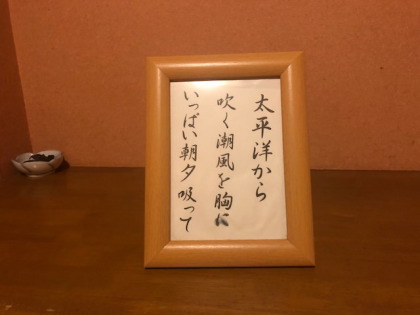 太平洋から
吹く潮風を胸に
いっぱい朝夕吸って